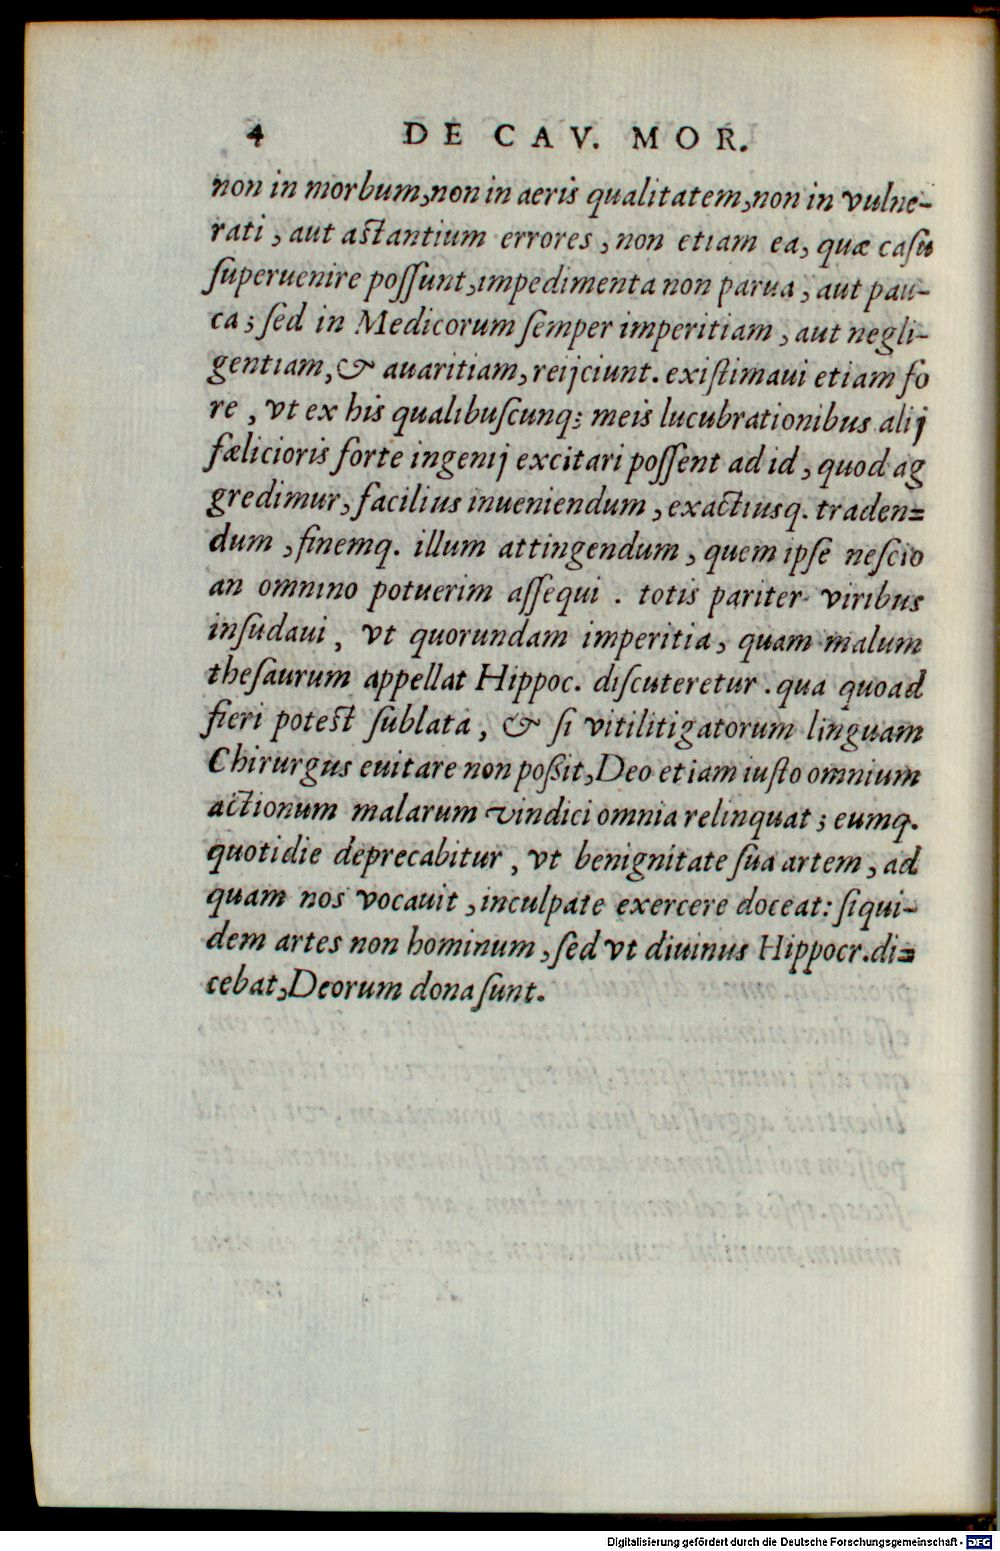 4 DE CAV. MOR.
non in morbum, non in aeris qualitatem, non in vulne-
rati, aut astantium errores, non etiam ea, quæ casu
superuenire possunt, impedimenta non parua, aut pau-
ca; sed in Medicorum semper imperitiam, aut negli-
gentiam, & auaritiam, reijciunt. existimaui etiam fo
re, vt ex his qualibuscunq; meis lucubrationibus alij
fælicioris forte ingenij excitari possent ad id, quod ag
gredimur, facilius inueniendum, exactiusq. traden=
dum, finemq. illum attingendum, quem ipse nescio
an omnino potuerim assequi. totis pariter viribus
insudaui, vt quorundam imperitia, quam malum
thesaurum appellat Hippoc. discuteretur. qua quoad
fieri potest sublata, & si vitilitigatorum linguam
Chirurgus euitare non poßit, Deo etiam iusto omnium
actionum malarum vindici omnia relinquat; eumq.
quotidie deprecabitur, vt benignitate sua artem, ad
quam nos vocauit, inculpate exercere doceat: siqui-
dem artes non hominum, sed vt diuinus Hippocr. di=
cebat, Deorum dona sunt.
Digitalisierung gefördert durch die Deutsche Forschungsgemeinschaft - DFG